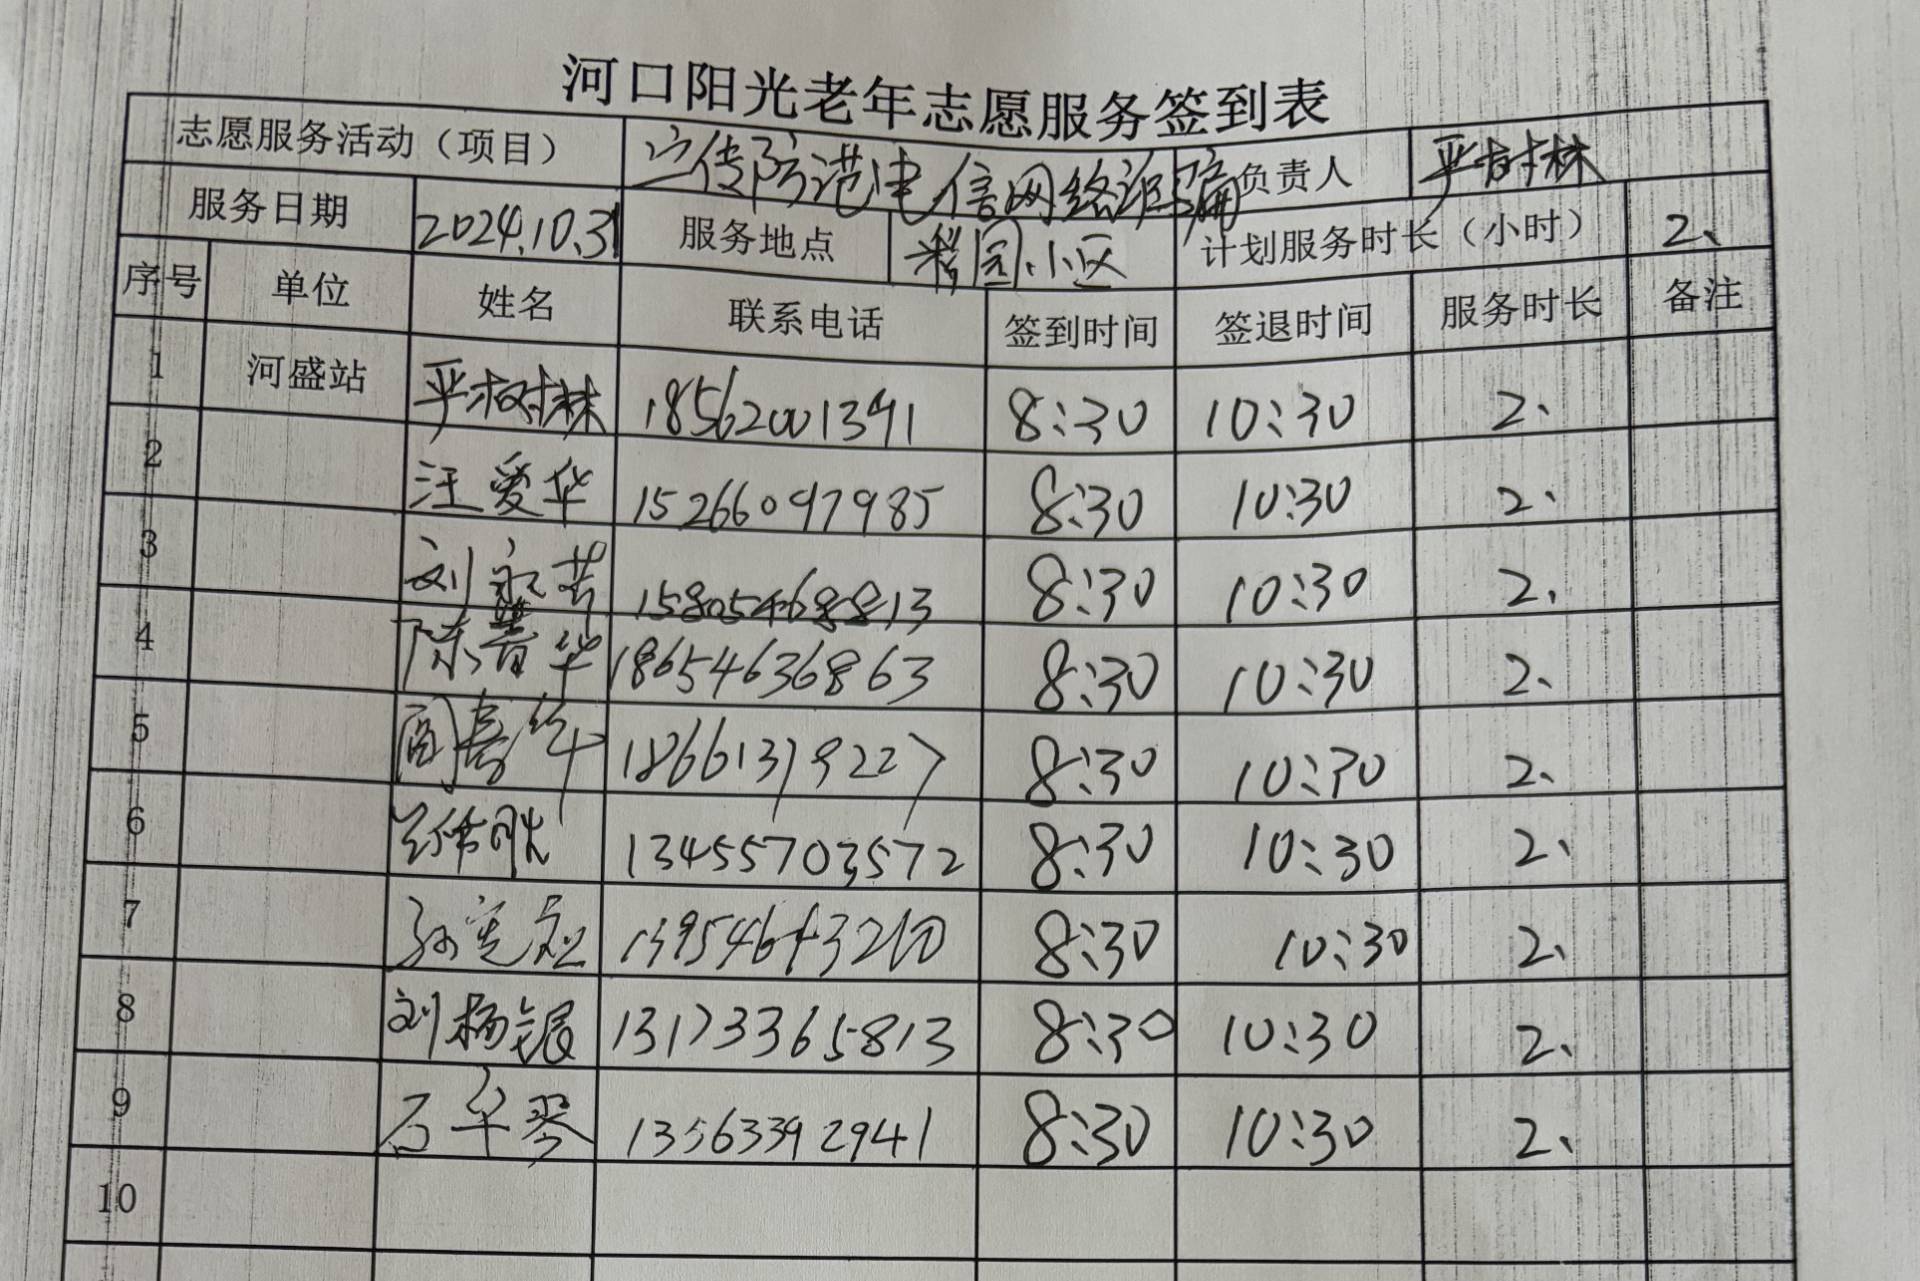 河口阳光老年志愿服务签到表
志愿服务活动（项目） 宣传防范电信网络诈骗 负责人 严树林
服务日期 2024.10.31 服务地点 小区 计划服务时长（小时） 2、
序号 单位 姓名 联系电话 签到时间 签退时间 服务时长 备注
1 河盛站 严树林 18562001391 8:30 10:30 2、
2 汪爱华 15266097985 8:30 10:30 2、
3 刘永芳 15805468813 8:30 10:30 2、
4 陈菁华 18654636863 8:30 10:30 2、
5 18661379227 8:30 10:30 2、
6 13455703572 8:30 10:30 2、
7 8:30 10:30 2、
8 刘杨银 13173365813 8:30 10:30 2、
9 石华琴 13563392941 8:30 10:30 2、
10